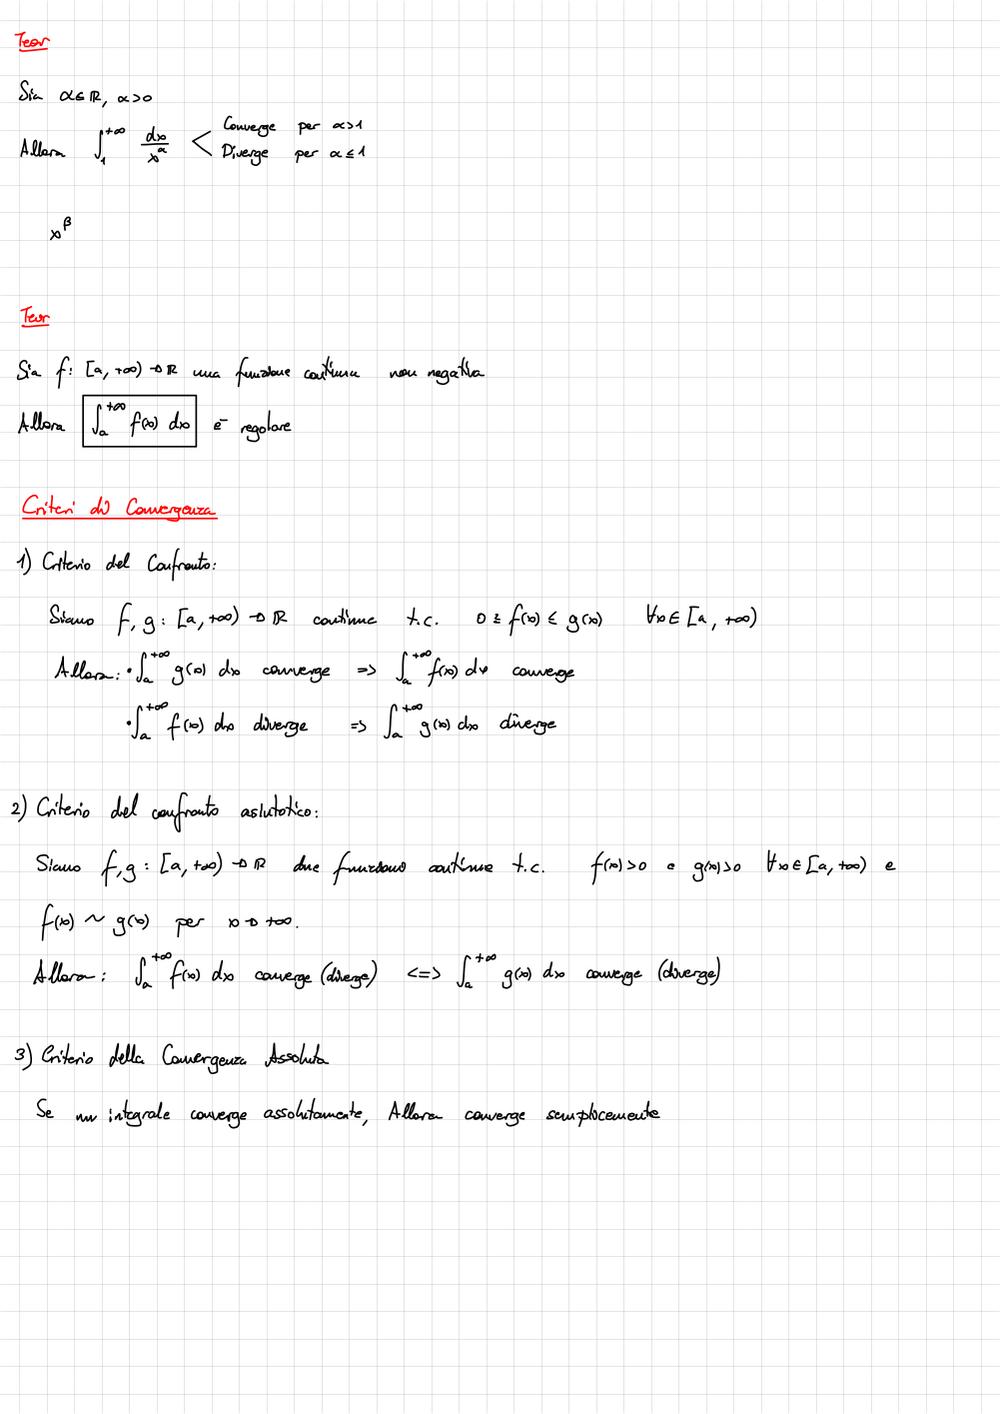 Teor
Sia α∈ℝ, α>0
Allora ∫₁^{+∞} dx/x^α < Converge per α>1
Diverge per α≤1
x^β
Teor
Sia f: [a, +∞) → ℝ una funzione continua non negativa
Allora ∫ₐ^{+∞} f(x) dx è regolare
Criteri di Convergenza
1) Criterio del Confronto:
Siano f, g : [a, +∞) → ℝ continue t.c. 0 ≤ f(x) ≤ g(x) ∀x∈ [a, +∞)
Allora: • ∫ₐ^{+∞} g(x) dx converge => ∫ₐ^{+∞} f(x) dx converge
• ∫ₐ^{+∞} f(x) dx diverge => ∫ₐ^{+∞} g(x) dx diverge
2) Criterio del confronto asintotico:
Siano f, g : [a, +∞) → ℝ due funzioni continue t.c. f(x)>0 e g(x)>0 ∀x∈ [a, +∞) e
f(x) ~ g(x) per x → +∞.
Allora: ∫ₐ^{+∞} f(x) dx converge (diverge) <=> ∫ₐ^{+∞} g(x) dx converge (diverge)
3) Criterio della Convergenza Assoluta
Se un integrale converge assolutamente, Allora converge semplicemente